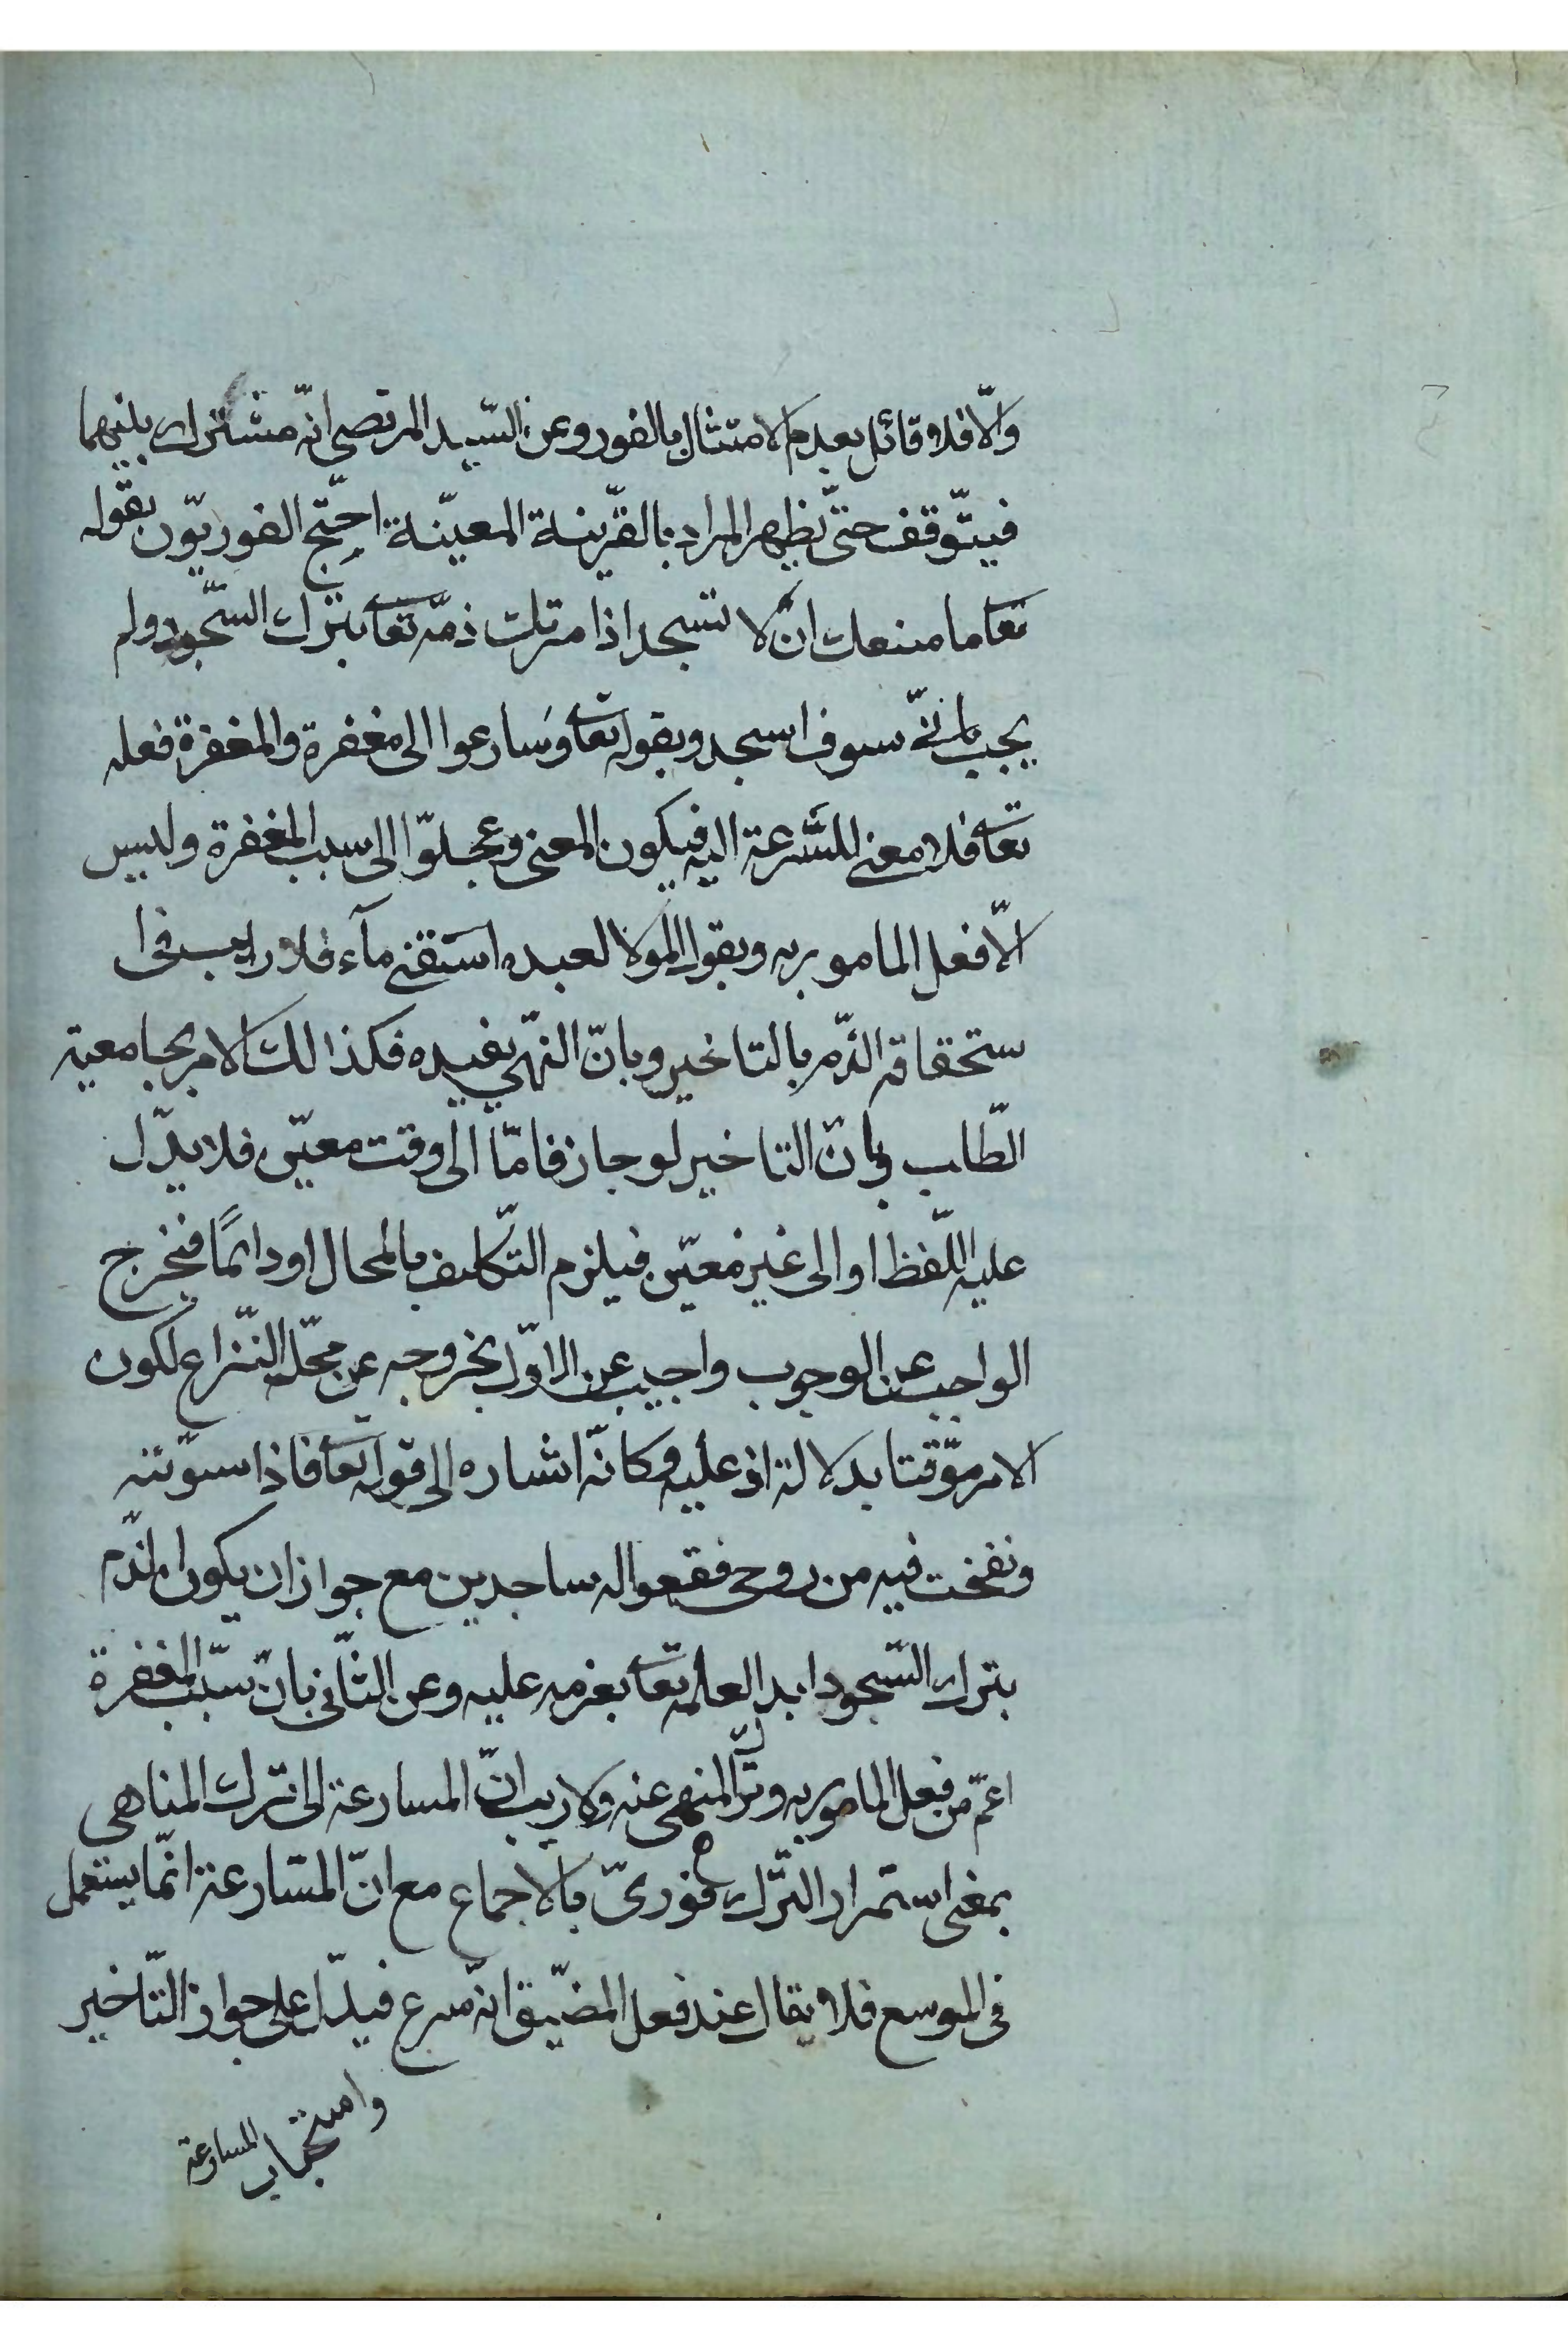 والّا فلا قائل بعدم الامتثال بالفور وعن السّيد المرتضى انّه مشترك بينهما
فيتوقف حتّى يظهر المراد بالقرينة المعيّنة احتجّ الفوريّون بقوله
تعا ما منعك ان لا تسجد اذا مرتك ذمّه تعا بترك السّجود ولم
يجب بانّه سوف اسجد وبقوله تعا وسارعوا الى مغفرة والمغفرة فعله
تعا فلا معنى للسّرعة اليه فيكون المعنى وعجلوّا الى سبب المغفرة وليس
الّا فعل المامور به وبقول المولا لعبده استقنى مآء فلا ريب فى ا
ستحقاقه الذّم بالتاخير وبانّ النّهى يفيده فكذا لك الامر بجامعية
الطّلب وبانّ التاخير لو جاز فامّا الى وقت معيّن فلا يدّل
عليه اللّفظ او الى غير معيّن فيلزم التّكليف بالمحال او دائمًا فيخرج
الواجب عن الوجوب واجيب عن الاوّل بخروجه عن محّل النّزاع لكون
الامر موّقتا بدلالة اذ عليه وكانّه اشاره الى قوله تعا فاذا سوّيته
ونفخت فيه من روحى فقعوا له ساجدين مع جواز ان يكون الذّم
بترك السّجود ابدا لعلمه تعا بعزمه عليه وعن الثّانى بانّ سبب المغفرة
اعمّ من فعل المامور به وترك المنهى عنه ولا ريب انّ المسارعة الى ترك المناهى
بمعنى استمرار التّرك فورىّ بالاجماع مع انّ المسّارعة انّما يستعمل
فى الموسع فلا يقال عند فعل المضيّق انّه سرع فيدّل على جواز التّاخير
وامتحباب المسارعة